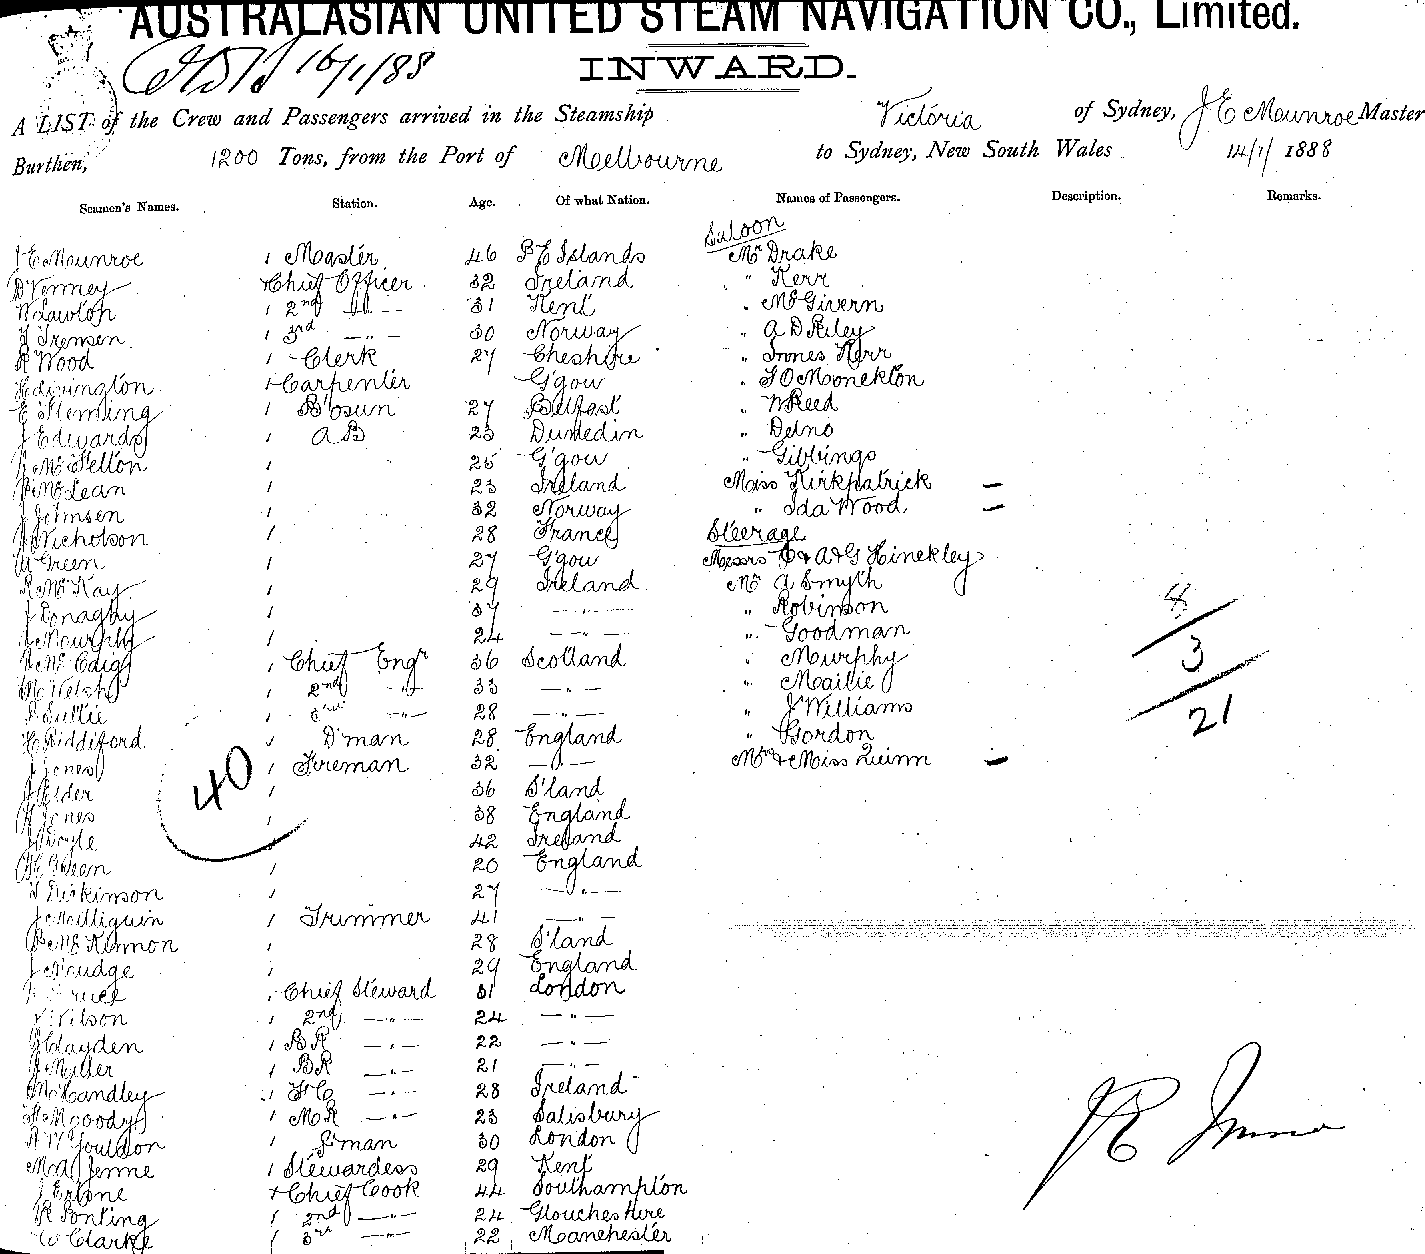 AUSTRALASIAN UNITED STEAM NAVIGATION CO., Limited.
16/1/88
INWARD.
A LIST of the Crew and Passengers arrived in the Steamship Victoria of Sydney, J E Munroe Master
Burthen, 1200 Tons, from the Port of Melbourne to Sydney, New South Wales 14/1/1888
Seamen's Names. Station. Age. Of what Nation. Names of Passengers. Description. Remarks.
Saloon
J E Munroe Master 46 Islands Mr Drake
Chief Officer 32 Ireland " Kerr
W Lawlop 2nd " 31 Kent " McGivern
3rd " 30 Norway " A D Riley
R Wood Clerk 27 Cheshire " Innes Kerr
H Livington Carpenter G'gow "
E Fleming B'osun 27 Belfast " W Reed
J Edwards A B 23 Dunedin "
25 G'gow " Gibbings
McLean 23 Ireland Miss Kirkpatrick =
J Johnsen 32 Norway " Ida Wood
J Nicholson 28 France Steerage
Green 27 G'gow Messrs & A & G Hinckley
R McKay 29 Ireland Mr A Smyth 8
37 — " — " Robinson
J Murphy 24 — " — " Goodman 3
Chief Engr 36 Scotland " Murphy
M Welsh 2nd " 33 — " — " Mailie
3rd " 28 — " — " J Williams 21
H Riddiford D'man 28 England " Gordon
J Jones Fireman 32 — " — Mrs & Miss Quinn –
J Elder 36 S'land
40
H Jones 38 England
J Doyle 42 Ireland
20 England
Dickinson 27 — " —
J Milliguin Trimmer 41 — " —
McKinnon 28 S'land
J Mudge 29 England
Chief Steward 31 London
Wilson 2nd — " — 24 — " —
J Hayden B R — " — 22 — " —
J Miller B R — " — 21 — " —
M Handley F C — " — 28 Ireland
H Moody M R — " — 23 Salisbury
man 30 London
Stewardess 29 Kent
Chief Cook 44 Southampton
R Ponting 2nd — " — 24 Gloucheshire
W Clarke 3rd — " — 22 Manchester
J E Munroe